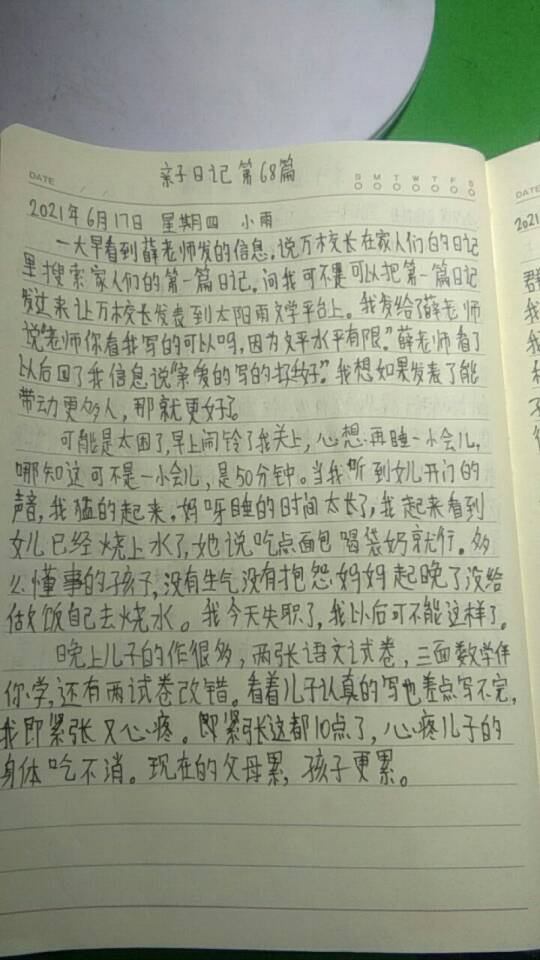 亲子日记 第68篇
DATE
S M T W T F S
2021年6月17日 星期四 小雨
一大早看到薛老师发的信息,说万校长在家人们的日记
里搜索家人们的第一篇日记。问我可不是可以把第一篇日记
发过来让万校长发表到太阳雨文学平台上。我发给了薛老师
说"老师你看我写的可以吗,因为文平水平有限。"薛老师看了
以后回了我信息说"亲爱的写的好"。我想如果发表了能
带动更多人,那就更好了。
可能是太困了,早上闹铃了我关上,心想再睡一小会儿,
哪知这可不是一小会儿,是50分钟。当我听到女儿开门的
声音,我猛的起来。妈呀睡的时间太长了,我起来看到
女儿已经烧上水了,她说吃点面包喝袋奶就行。多
么懂事的孩子,没有生气没有抱怨妈妈起晚了没给
做饭自己去烧水。我今天失职了,我以后可不能这样了。
晚上儿子的作很多,两张语文试卷,三面数学伴
你学,还有两试卷改错。看着儿子认真的写也差点写不完,
我即紧张又心疼。即紧张这都10点了,心疼儿子的
身体吃不消。现在的父母累,孩子更累。
DATE
2021
群
我
我